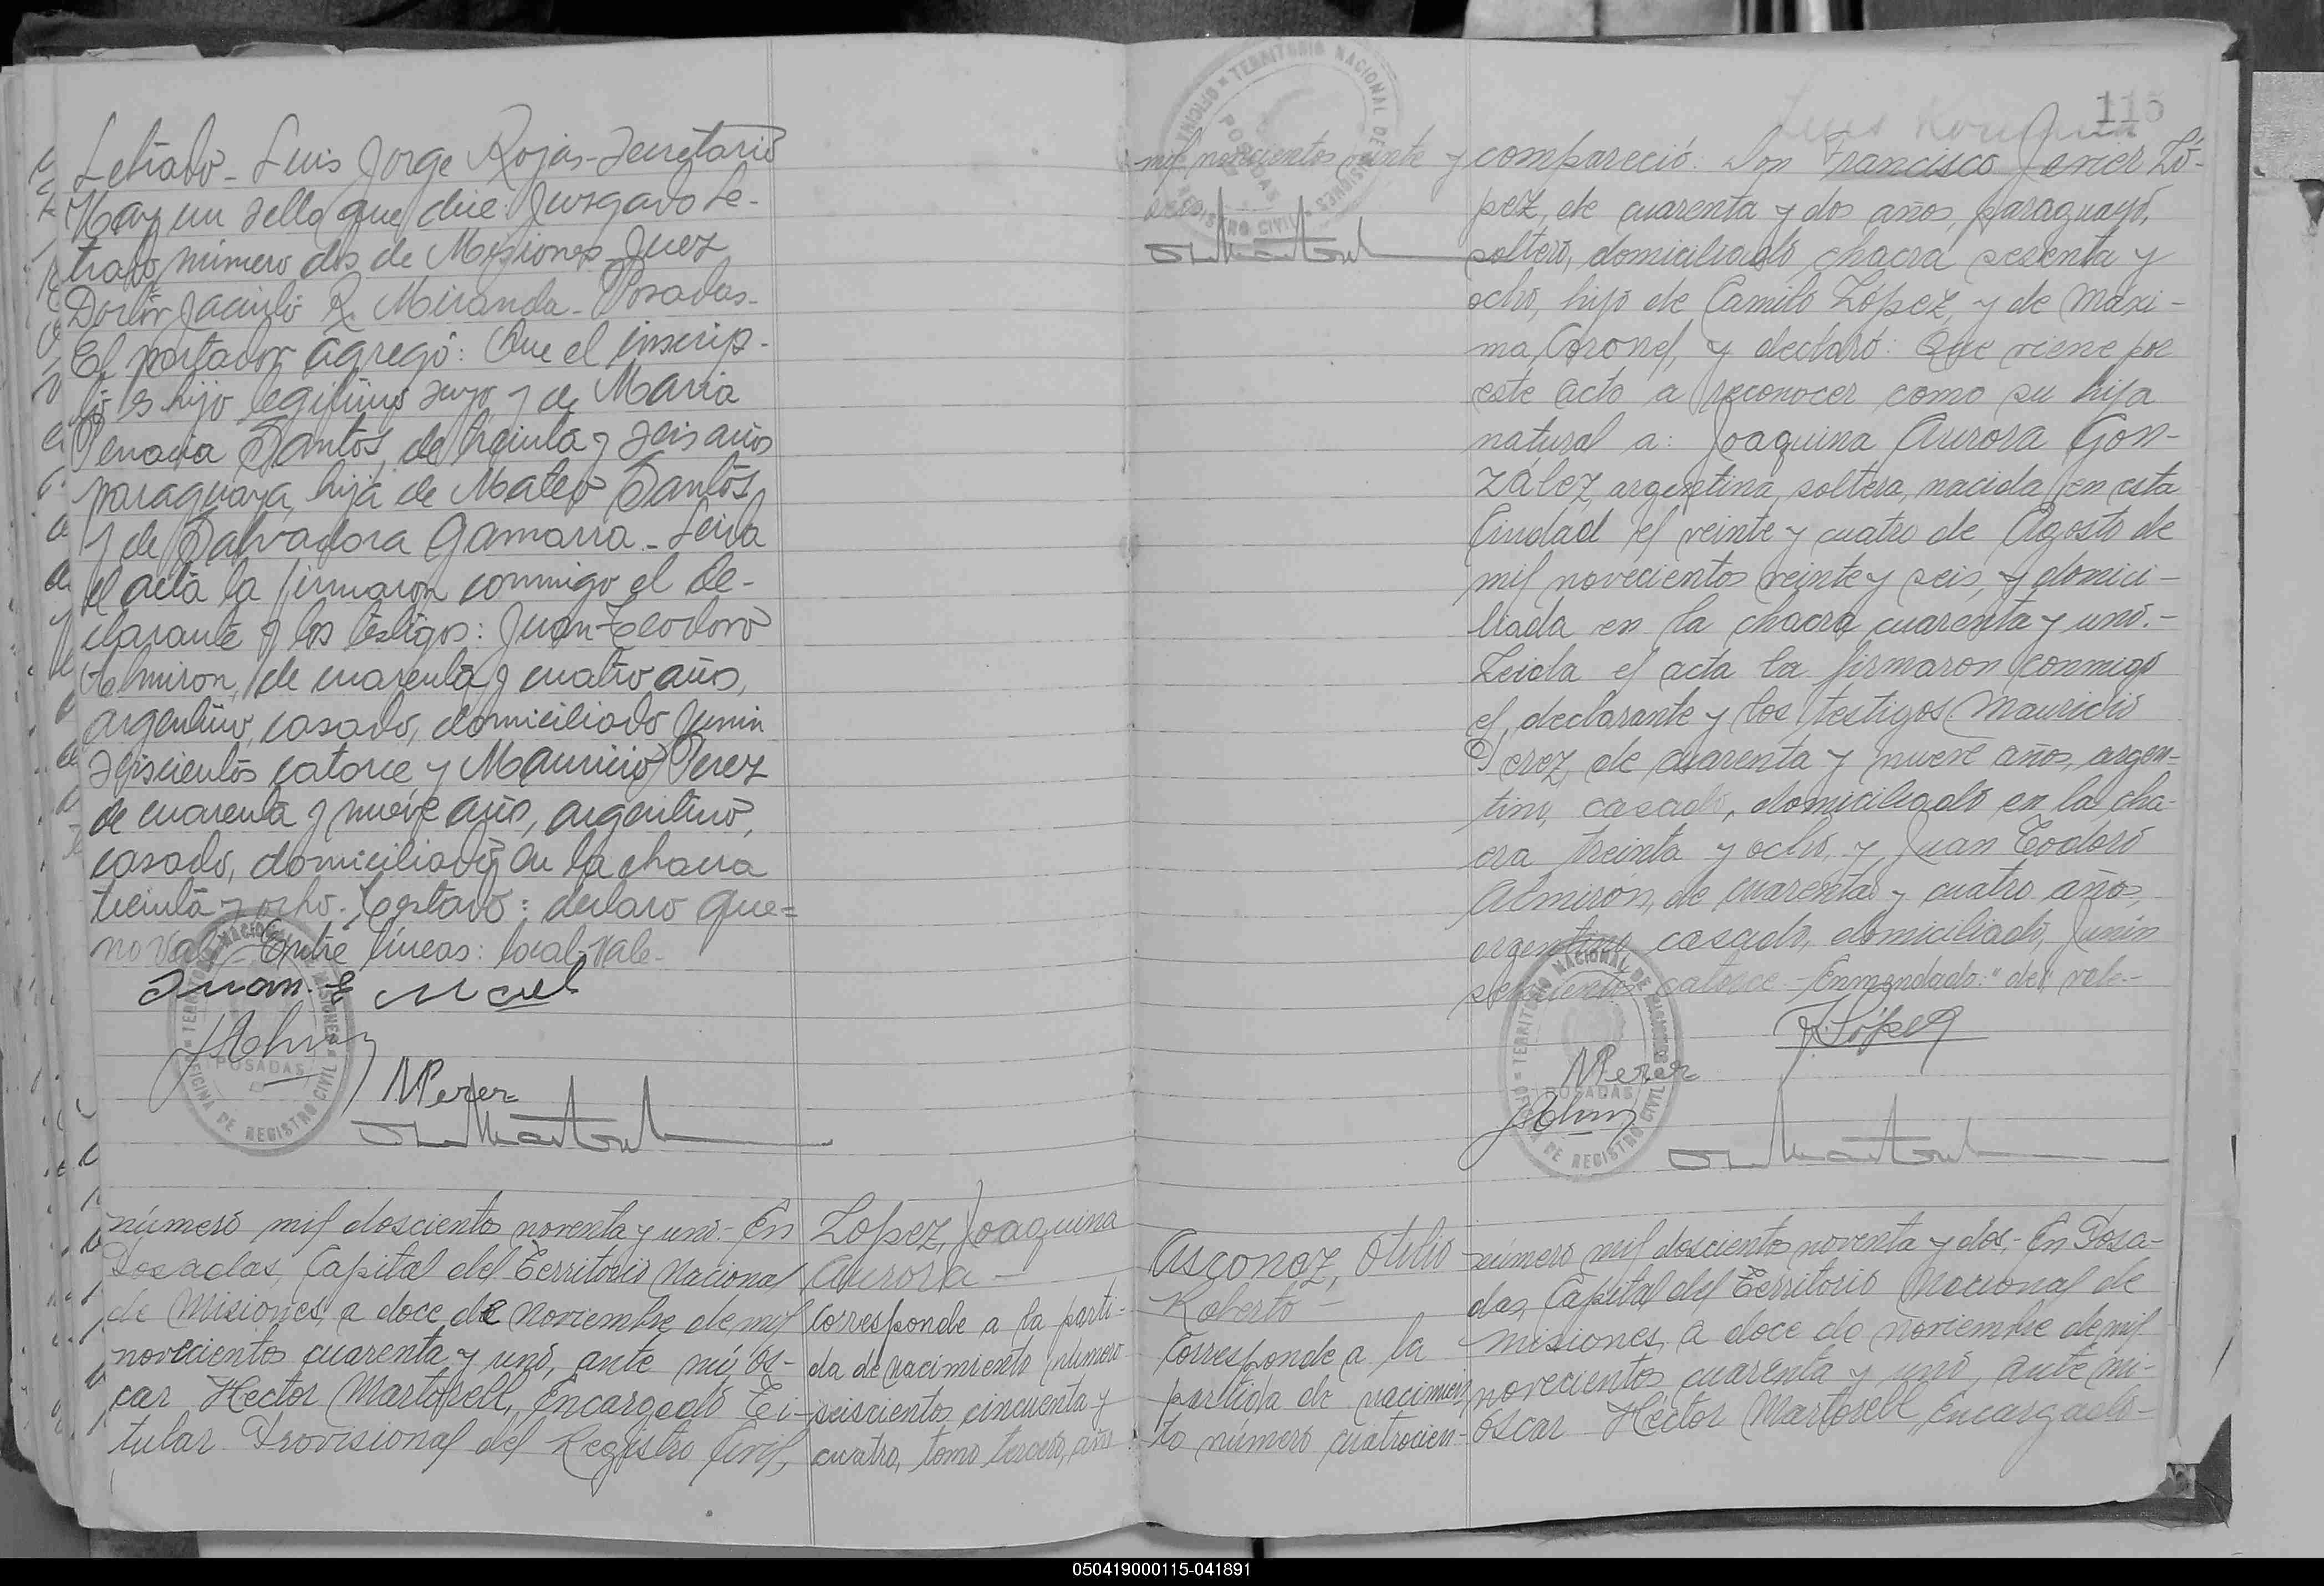 Letrado - Luis Jorge Rojas - Secretario
Hay un sello que dice: Juzgado Le-
trado número dos de Misiones - Juez
Doctor Jacinto R. Miranda - Posadas -
El portador agregó: Que el inscrip-
to es hijo legítimo suyo y de Maria
Santos, de treinta y seis años
paraguaya, hija de Mateo Santos
y de Salvadora Gamarra - Leida
el acta la firmaron conmigo el de-
clarante y los testigos: Juan Teodoro
Almiron, de cuarenta y cuatro años,
argentino, casado, domiciliado Junin
seiscientos catorce y Mauricio Perez
de cuarenta y nueve años, argentino,
casado, domiciliado en la chacra
treinta y ocho. Testado: declaro que =
no vale - Entre líneas: local - Vale -
Juan E
MPerez
número mil doscientos noventa y uno - En
Posadas, Capital del Territorio Nacional
de Misiones, a doce de Noviembre de mil
novecientos cuarenta y uno, ante mí, Os-
car Hector Martorell, Encargado Ti-
tular Provisional del Registro Civil,
Lopez, Joaquina
Aurora -
Corresponde a la parti-
da de nacimiento número
seiscientos cincuenta y
cuatro, tomo tercero, año
mil novecientos veinte y
seis
OFICINA DE REGISTRO CIVIL
TERRITORIO NACIONAL DE MISIONES
POSADAS
115
compareció: Don Francisco Javier Ló-
pez, de cuarenta y dos años, paraguayo,
soltero, domiciliado chacra sesenta y
ocho, hijo de Camilo López, y de Máxi-
ma Coronel, y declaró: Que viene por
este acto a reconocer como su hija
natural a: Joaquina Aurora Gon-
zález, argentina, soltera, nacida en esta
Ciudad el veinte y cuatro de Agosto de
mil novecientos veinte y seis, y domici-
liada en la chacra cuarenta y uno. -
Leida el acta la firmaron conmigo
el declarante y los testigos Mauricio
Perez, de cuarenta y nueve años, argen-
tino, casado, domiciliado en la cha-
cra treinta y ocho, y Juan Teodoro
Almirón, de cuarenta y cuatro años,
argentino, casado, domiciliado, Junín
seiscientos catorce - Enmendado: "de" vale -
F. López
MPerez
Asconaz, Otilio
Roberto -
Corresponde a la
partida de nacimien
to número cuatrocien-
número mil doscientos noventa y dos - En Posa-
das, Capital del Territorio Nacional de
Misiones, a doce de Noviembre de mil
novecientos cuarenta y uno, ante mí -
Oscar Héctor Martorell, Encargado -
050419000115-041891